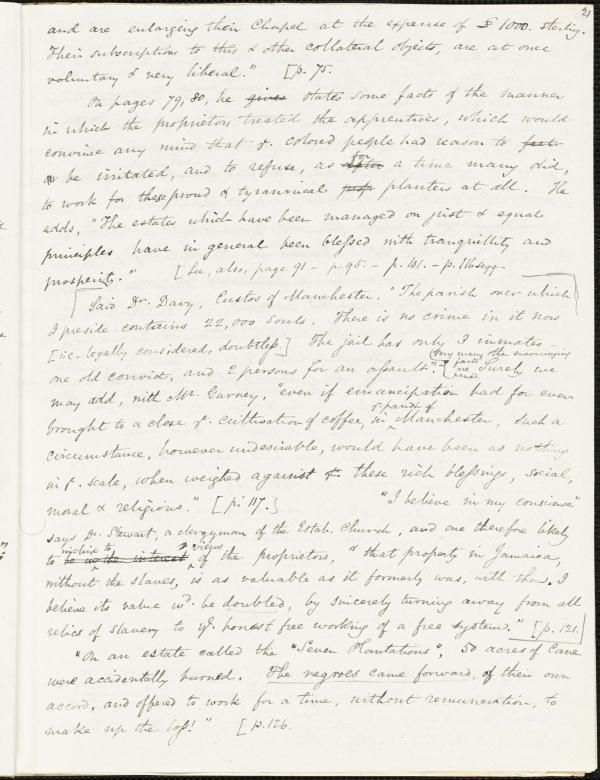 21
and are enlarging their Chapel at the expense of £1000. sterling.
Their subscriptions to this & other collateral objects, are at once
voluntary & very liberal." [p. 75.
On pages 79, 80, he gives states some facts of the manner
in which the proprietors treated the apprentices, which would
convince any mind that ye. colored people had reason to feel
be irritated, and to refuse, as for a time many did,
to work for these proud & tyrannical planters at all. He
adds, "The estates which have been managed on just & equal
principles have in general been blessed with tranquillity and
prosperity." [See, also, page 91 – p. 95. – p. 101. – p. 116 seqq.
Said Dr. Davy, Custos of Manchester. "The parish over which
I preside contains 22,000 souls. There is no crime in it now
[i.e. legally considered, doubtless.] The jail has only 3 inmates –
one old convict, and 2 persons for an assault." Surely we
(My many the encouraging
facts
are
named
may add, with Mr. Gurney, "even if emancipation had for ever
brought to a close ye. cultivation of coffee, in ye. parish of Manchester, such a
circumstance, however undesirable, would have been as nothing
in ye. scale, when weighed against these rich blessings, social,
moral & religious." [p. 117.] "I believe in my conscience"
says Dr. Stewart, a clergyman of the Estab. Church, and one therefore likely
to be in the interest incline to ye views of the proprietors, "that property in Jamaica,
without the slaves, is as valuable as it formerly was, with them. I
believe its value wd. be doubled, by sincerely turning away from all
relics of slavery to ye. honest free working of a free system." [p. 121.]
"On an estate called the "Seven Plantations", 50 acres of Cane
were accidentally burned. The negroes came forward, of their own
accord, and offered to work for a time, without remuneration, to
make up the loss!" [p. 126.